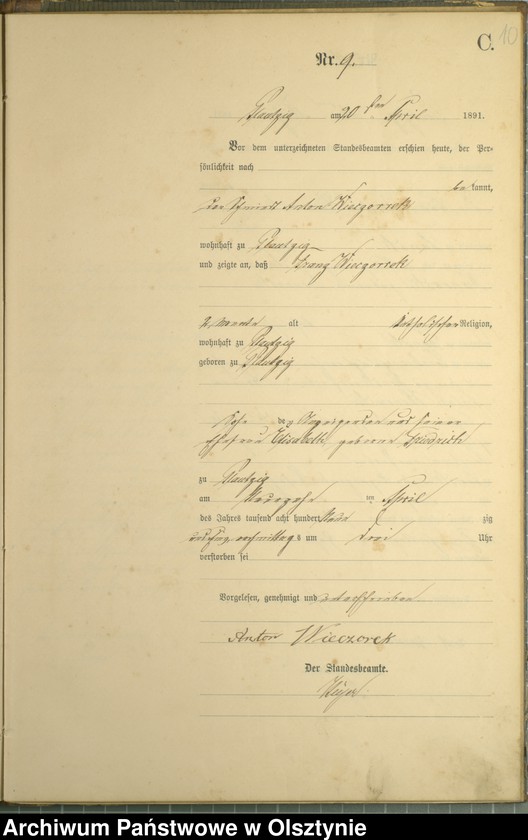 C.
10
Nr. 9.
Plautzig am 20 ten April 1891.
Vor dem unterzeichneten Standesbeamten erschien heute, der Per-
sönlichkeit nach
be kannt,
Anton Wieczorrek
wohnhaft zu Plautzig
und zeigte an, daß Franz Wieczorrek
2 Monate alt katholischer Religion,
wohnhaft zu Plautzig
geboren zu Plautzig
Sohn des Anzeigenden und seiner
Ehefrau Elisabeth, geborene
zu Plautzig
am ten April
des Jahres tausend acht hundert neun zig
und eins vormittags um drei Uhr
verstorben sei
Vorgelesen, genehmigt und unterschrieben
Anton Wieczorek
Der Standesbeamte.
Archiwum Państwowe w Olsztynie